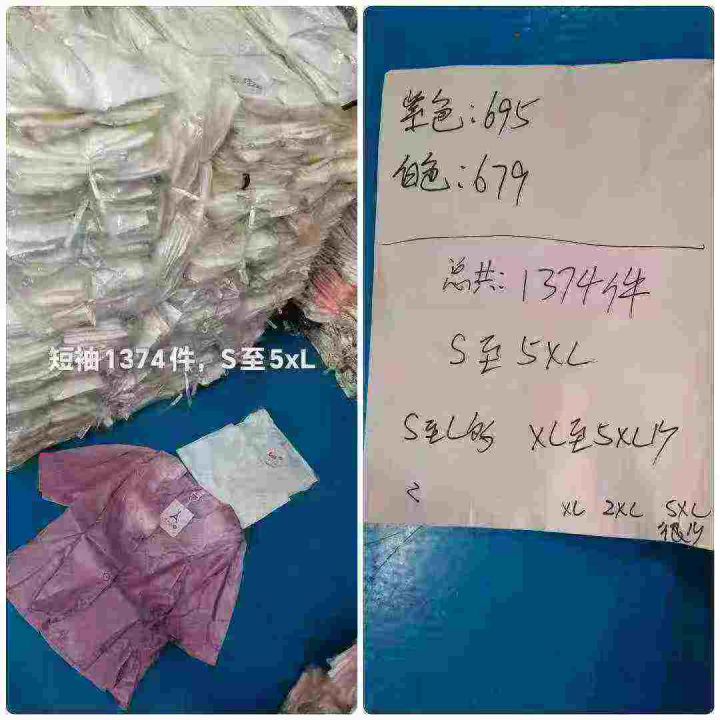 短袖1374件，S至5xL
紫色:695
白色:679
总共:1374件
S至5XL
S至L多 XL至5XL少
2
XL 2XL 5XL
很少